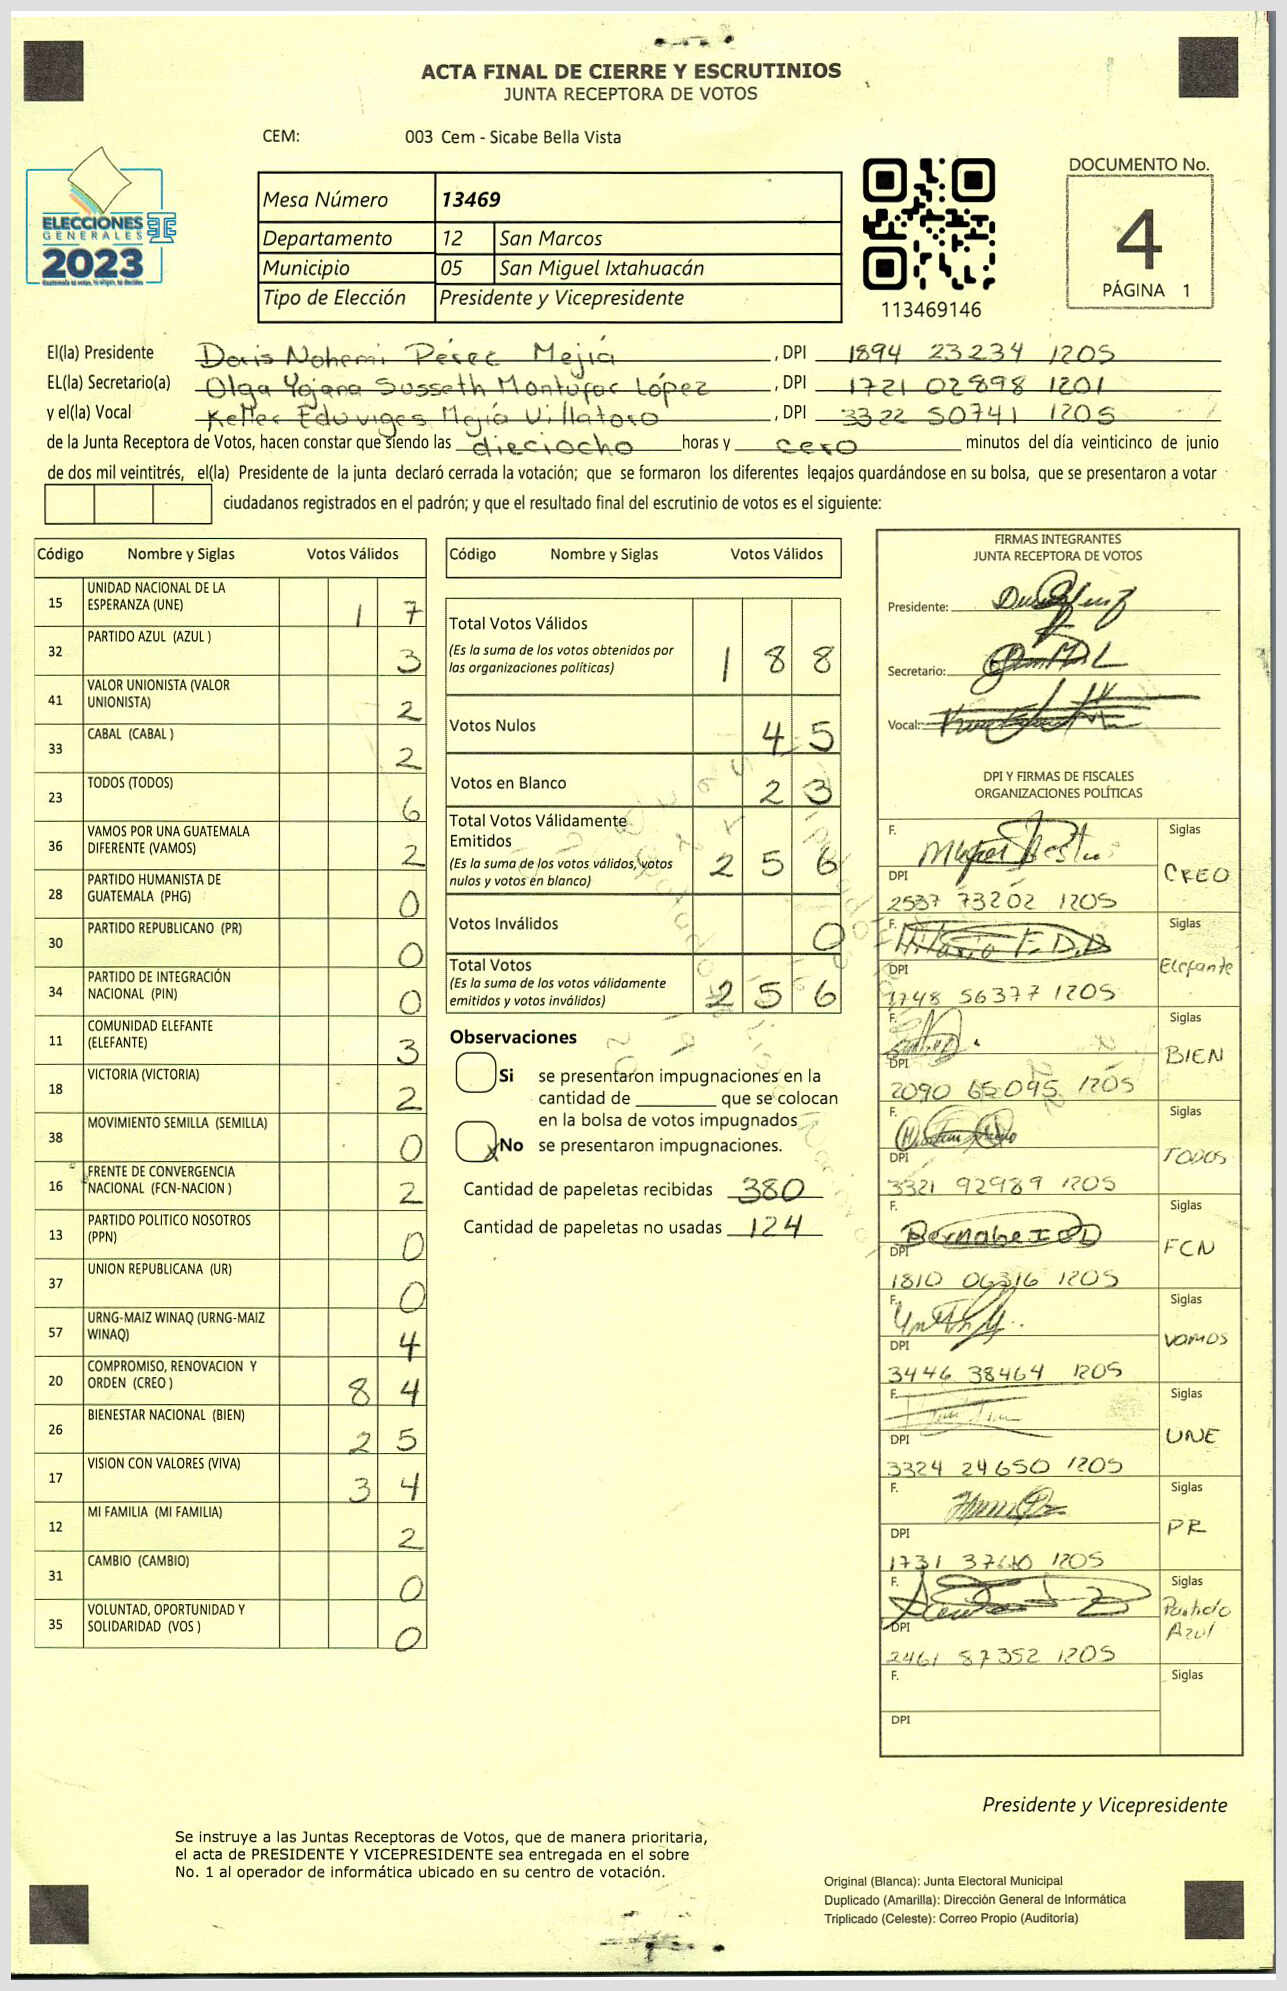 ACTA FINAL DE CIERRE Y ESCRUTINIOS
JUNTA RECEPTORA DE VOTOS
CEM: 003 Cem - Sicabe Bella Vista
ELECCIONES
GENERALES
2023
Mesa Número 13469
Departamento 12 San Marcos
Municipio 05 San Miguel Ixtahuacán
Tipo de Elección Presidente y Vicepresidente
113469146
DOCUMENTO No.
4
PÁGINA 1
El(la) Presidente Doris Nohemi Pérez Mejía , DPI 1894 23234 1205
EL(la) Secretario(a) Olga Yojana Susseth Montufar López , DPI 1721 02898 1201
y el(la) Vocal Keller Eduviges Mejía Villatoro , DPI 3322 50741 1205
de la Junta Receptora de Votos, hacen constar que siendo las dieciocho horas y cero minutos del día veinticinco de junio
de dos mil veintitrés, el(la) Presidente de la junta declaró cerrada la votación; que se formaron los diferentes legajos quardándose en su bolsa, que se presentaron a votar
ciudadanos registrados en el padrón; y que el resultado final del escrutinio de votos es el siguiente:
Código Nombre y Siglas Votos Válidos
15 UNIDAD NACIONAL DE LA ESPERANZA (UNE) 1 7
32 PARTIDO AZUL (AZUL ) 3
41 VALOR UNIONISTA (VALOR UNIONISTA) 2
33 CABAL (CABAL ) 2
23 TODOS (TODOS) 6
36 VAMOS POR UNA GUATEMALA DIFERENTE (VAMOS) 2
28 PARTIDO HUMANISTA DE GUATEMALA (PHG) 0
30 PARTIDO REPUBLICANO (PR) 0
34 PARTIDO DE INTEGRACIÓN NACIONAL (PIN) 0
11 COMUNIDAD ELEFANTE (ELEFANTE) 3
18 VICTORIA (VICTORIA) 2
38 MOVIMIENTO SEMILLA (SEMILLA) 0
16 FRENTE DE CONVERGENCIA NACIONAL (FCN-NACION ) 2
13 PARTIDO POLITICO NOSOTROS (PPN) 0
37 UNION REPUBLICANA (UR) 0
57 URNG-MAIZ WINAQ (URNG-MAIZ WINAQ) 4
20 COMPROMISO, RENOVACION Y ORDEN (CREO ) 8 4
26 BIENESTAR NACIONAL (BIEN) 2 5
17 VISION CON VALORES (VIVA) 3 4
12 MI FAMILIA (MI FAMILIA) 2
31 CAMBIO (CAMBIO) 0
35 VOLUNTAD, OPORTUNIDAD Y SOLIDARIDAD (VOS ) 0
Código Nombre y Siglas Votos Válidos
Total Votos Válidos 1 8 8
(Es la suma de los votos obtenidos por
las organizaciones políticas)
Votos Nulos 4 5
Votos en Blanco 2 3
Total Votos Válidamente
Emitidos 2 5 6
(Es la suma de los votos válidos, votos
nulos y votos en blanco)
Votos Inválidos 0
Total Votos 2 5 6
(Es la suma de los votos válidamente
emitidos y votos inválidos)
Observaciones
Si se presentaron impugnaciones en la
cantidad de ________ que se colocan
en la bolsa de votos impugnados
X No se presentaron impugnaciones.
Cantidad de papeletas recibidas 380
Cantidad de papeletas no usadas 124
FIRMAS INTEGRANTES
JUNTA RECEPTORA DE VOTOS
Presidente:
Secretario:
Vocal:
DPI Y FIRMAS DE FISCALES
ORGANIZACIONES POLÍTICAS
F. Siglas
CREO
DPI
2537 73202 1205
F. Siglas
Elefante
DPI
1748 56377 1205
F. Siglas
BIEN
DPI
2090 65095 1205
F. Siglas
TODOS
DPI
3321 92989 1205
F. Bernabe Siglas
FCN
DPI
1810 06316 1205
F. Siglas
VAMOS
DPI
3446 38464 1205
F. Siglas
UNE
DPI
3324 24650 1205
F. Siglas
PR
DPI
1731 1205
F. Siglas
Partido
Azul
DPI
2461 87352 1205
F. Siglas
DPI
Presidente y Vicepresidente
Se instruye a las Juntas Receptoras de Votos, que de manera prioritaria,
el acta de PRESIDENTE Y VICEPRESIDENTE sea entregada en el sobre
No. 1 al operador de informática ubicado en su centro de votación.
Original (Blanca): Junta Electoral Municipal
Duplicado (Amarilla): Dirección General de Informática
Triplicado (Celeste): Correo Propio (Auditoría)